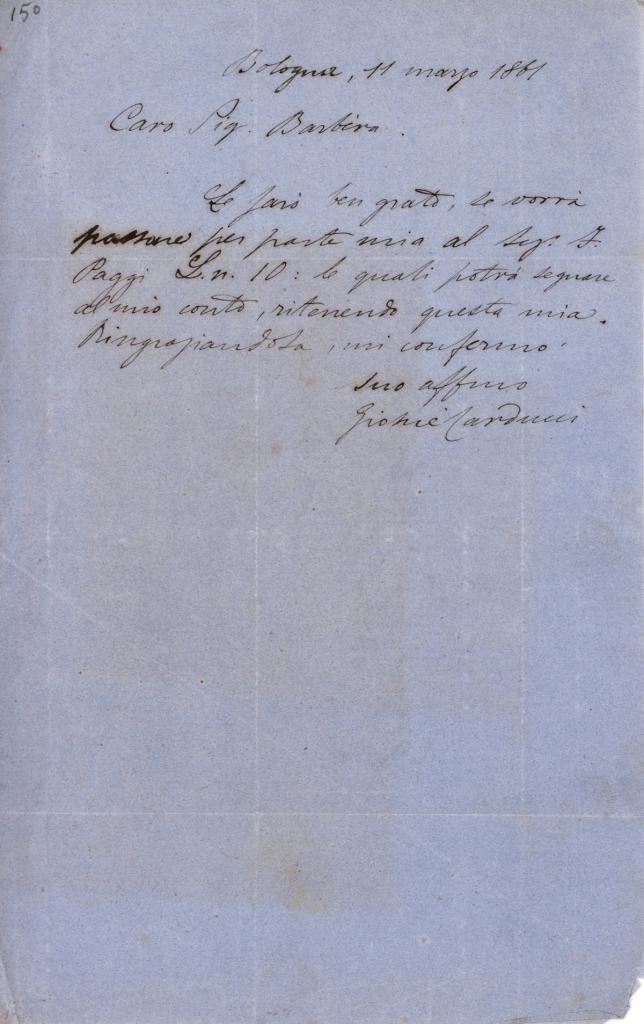 150
Bologna, 11 marzo 1861
Caro Sig. Barbèra.
Le sarò ben grato, se vorrà
passare per parte mia al Sig.
Paggi L. n. 10: le quali potrà segnare
al mio conto, ritenendo questa mia.
Ringraziandola, mi confermo
suo affmo
Giosuè Carducci